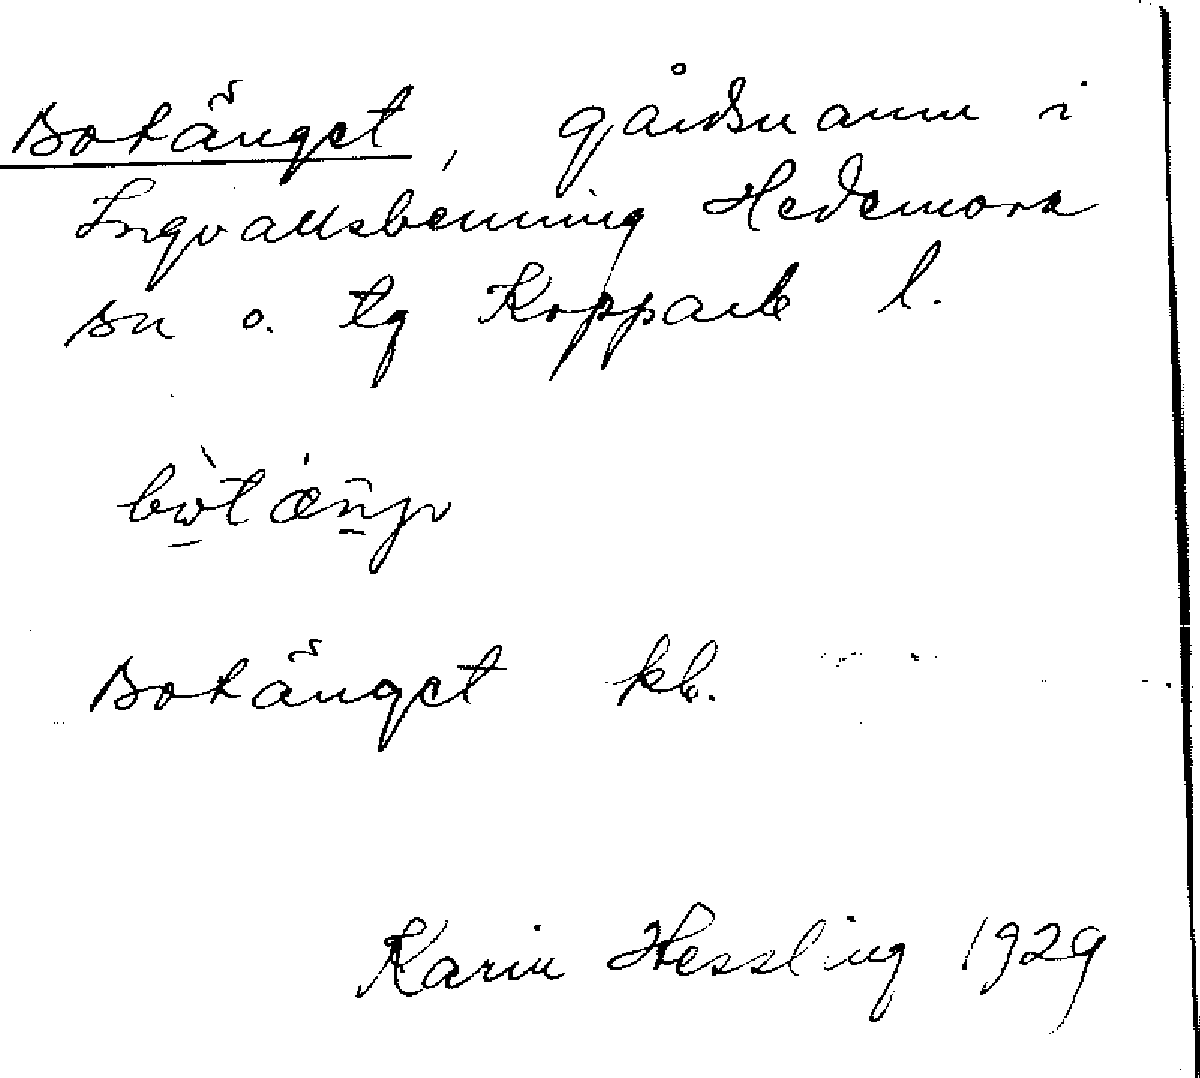 Botänget, gårdsnamn i
Ingvallsbenning Hedemora
sn o. tg Kopparb l.
Botänget kb.
Karin Hessling 1929